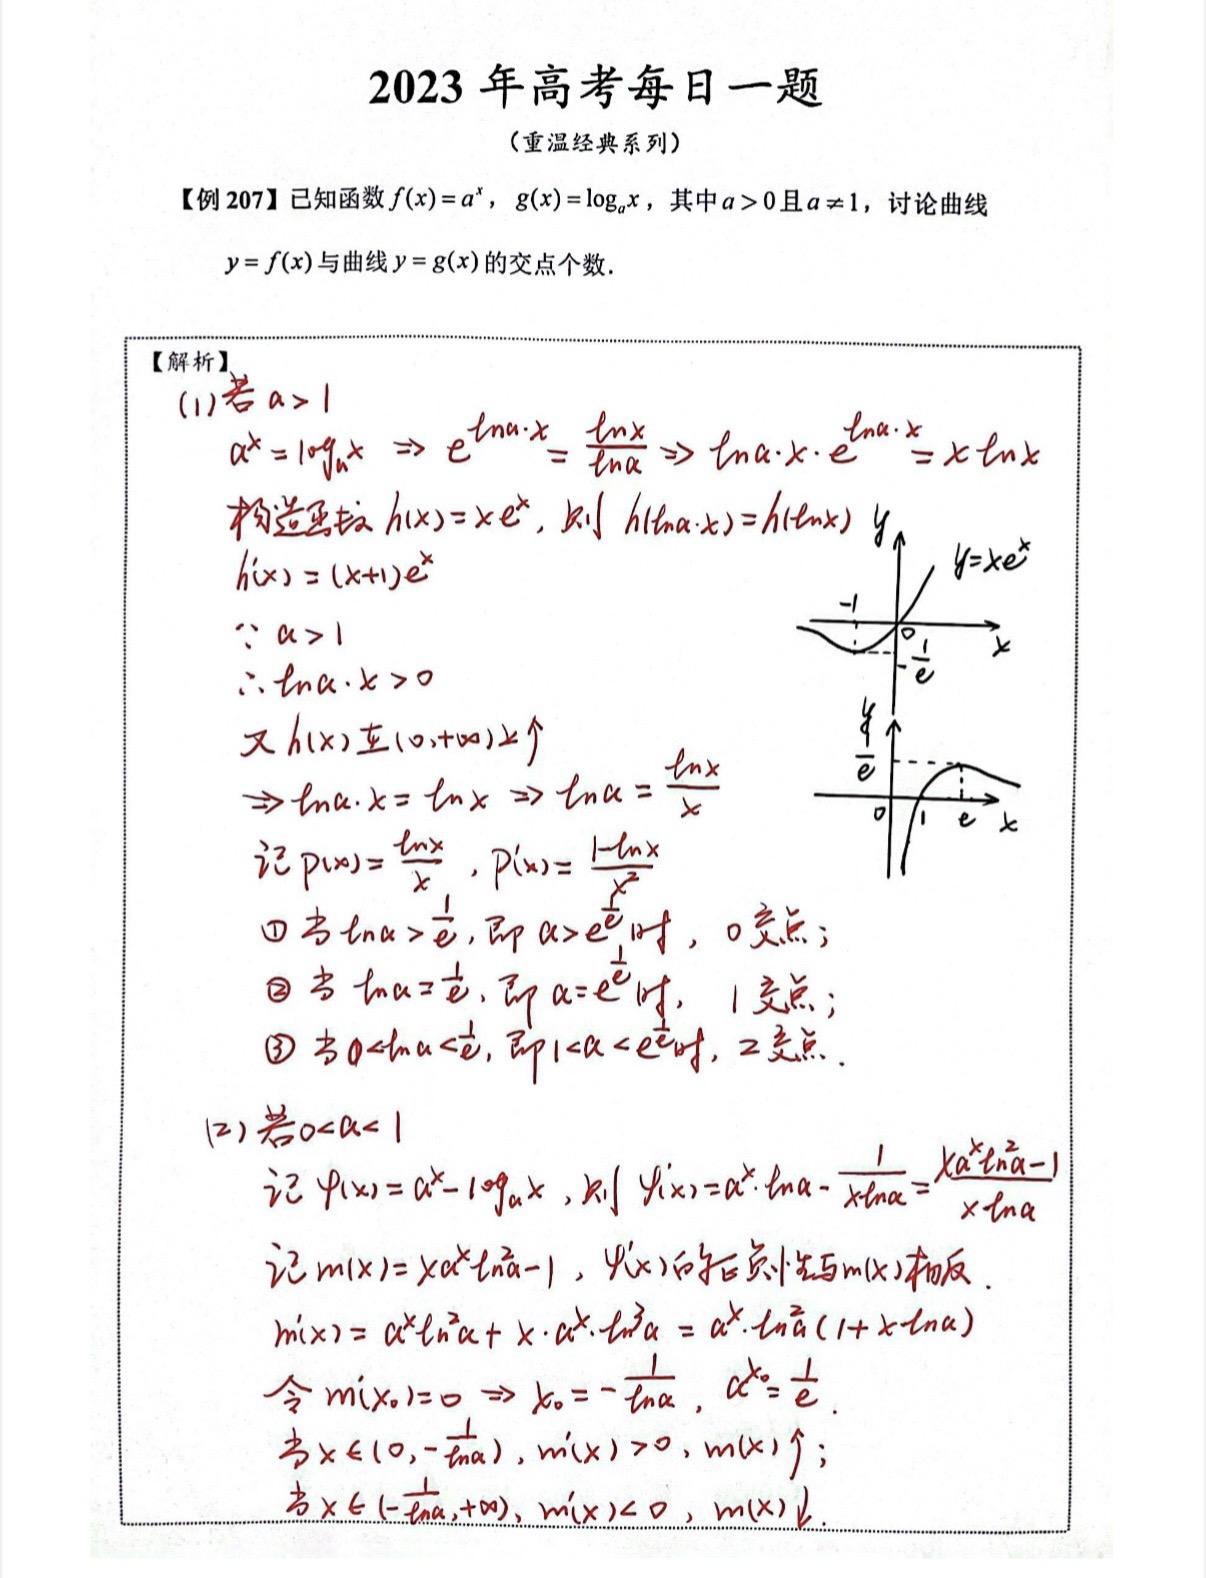 2023 年高考每日一题
（重温经典系列）
【例 207】已知函数 f(x)=aˣ，g(x)=logₐx，其中 a>0 且 a≠1，讨论曲线
y=f(x) 与曲线 y=g(x) 的交点个数.
【解析】
(1) 若 a>1
aˣ=logₐx ⇒ e^(lna·x) = lnx/lna ⇒ lna·x·e^(lna·x) = xlnx
构造函数 h(x)=xeˣ, 则 h(lna·x)=h(lnx)
h'(x)=(x+1)eˣ
∵ a>1
∴ lna·x>0
又 h(x) 在(0,+∞)上↑
⇒ lna·x=lnx ⇒ lna=lnx/x
记 p(x)=lnx/x , p'(x)=(1-lnx)/x²
① 当 lna>1/e, 即 a>e^(1/e) 时, 0 交点;
② 当 lna=1/e, 即 a=e^(1/e) 时, 1 交点;
③ 当 0<lna<1/e, 即 1<a<e^(1/e) 时, 2 交点.
y
y=xeˣ
-1
0
x
-1/e
y
1/e
0
1
e
x
(2) 若 0<a<1
记 φ(x)=aˣ-logₐx, 则 φ'(x)=aˣ·lna-1/(xlna)=(xaˣln²a-1)/(xlna)
记 m(x)=xaˣln²a-1, φ'(x)的正负性与m(x)相反.
m'(x)=aˣln²a+x·aˣ·ln³a=aˣ·ln²a(1+xlna)
令 m'(x₀)=0 ⇒ x₀=-1/lna, a^(x₀)=1/e.
当 x∈(0,-1/lna), m'(x)>0, m(x)↑;
当 x∈(-1/lna,+∞), m'(x)<0, m(x)↓.